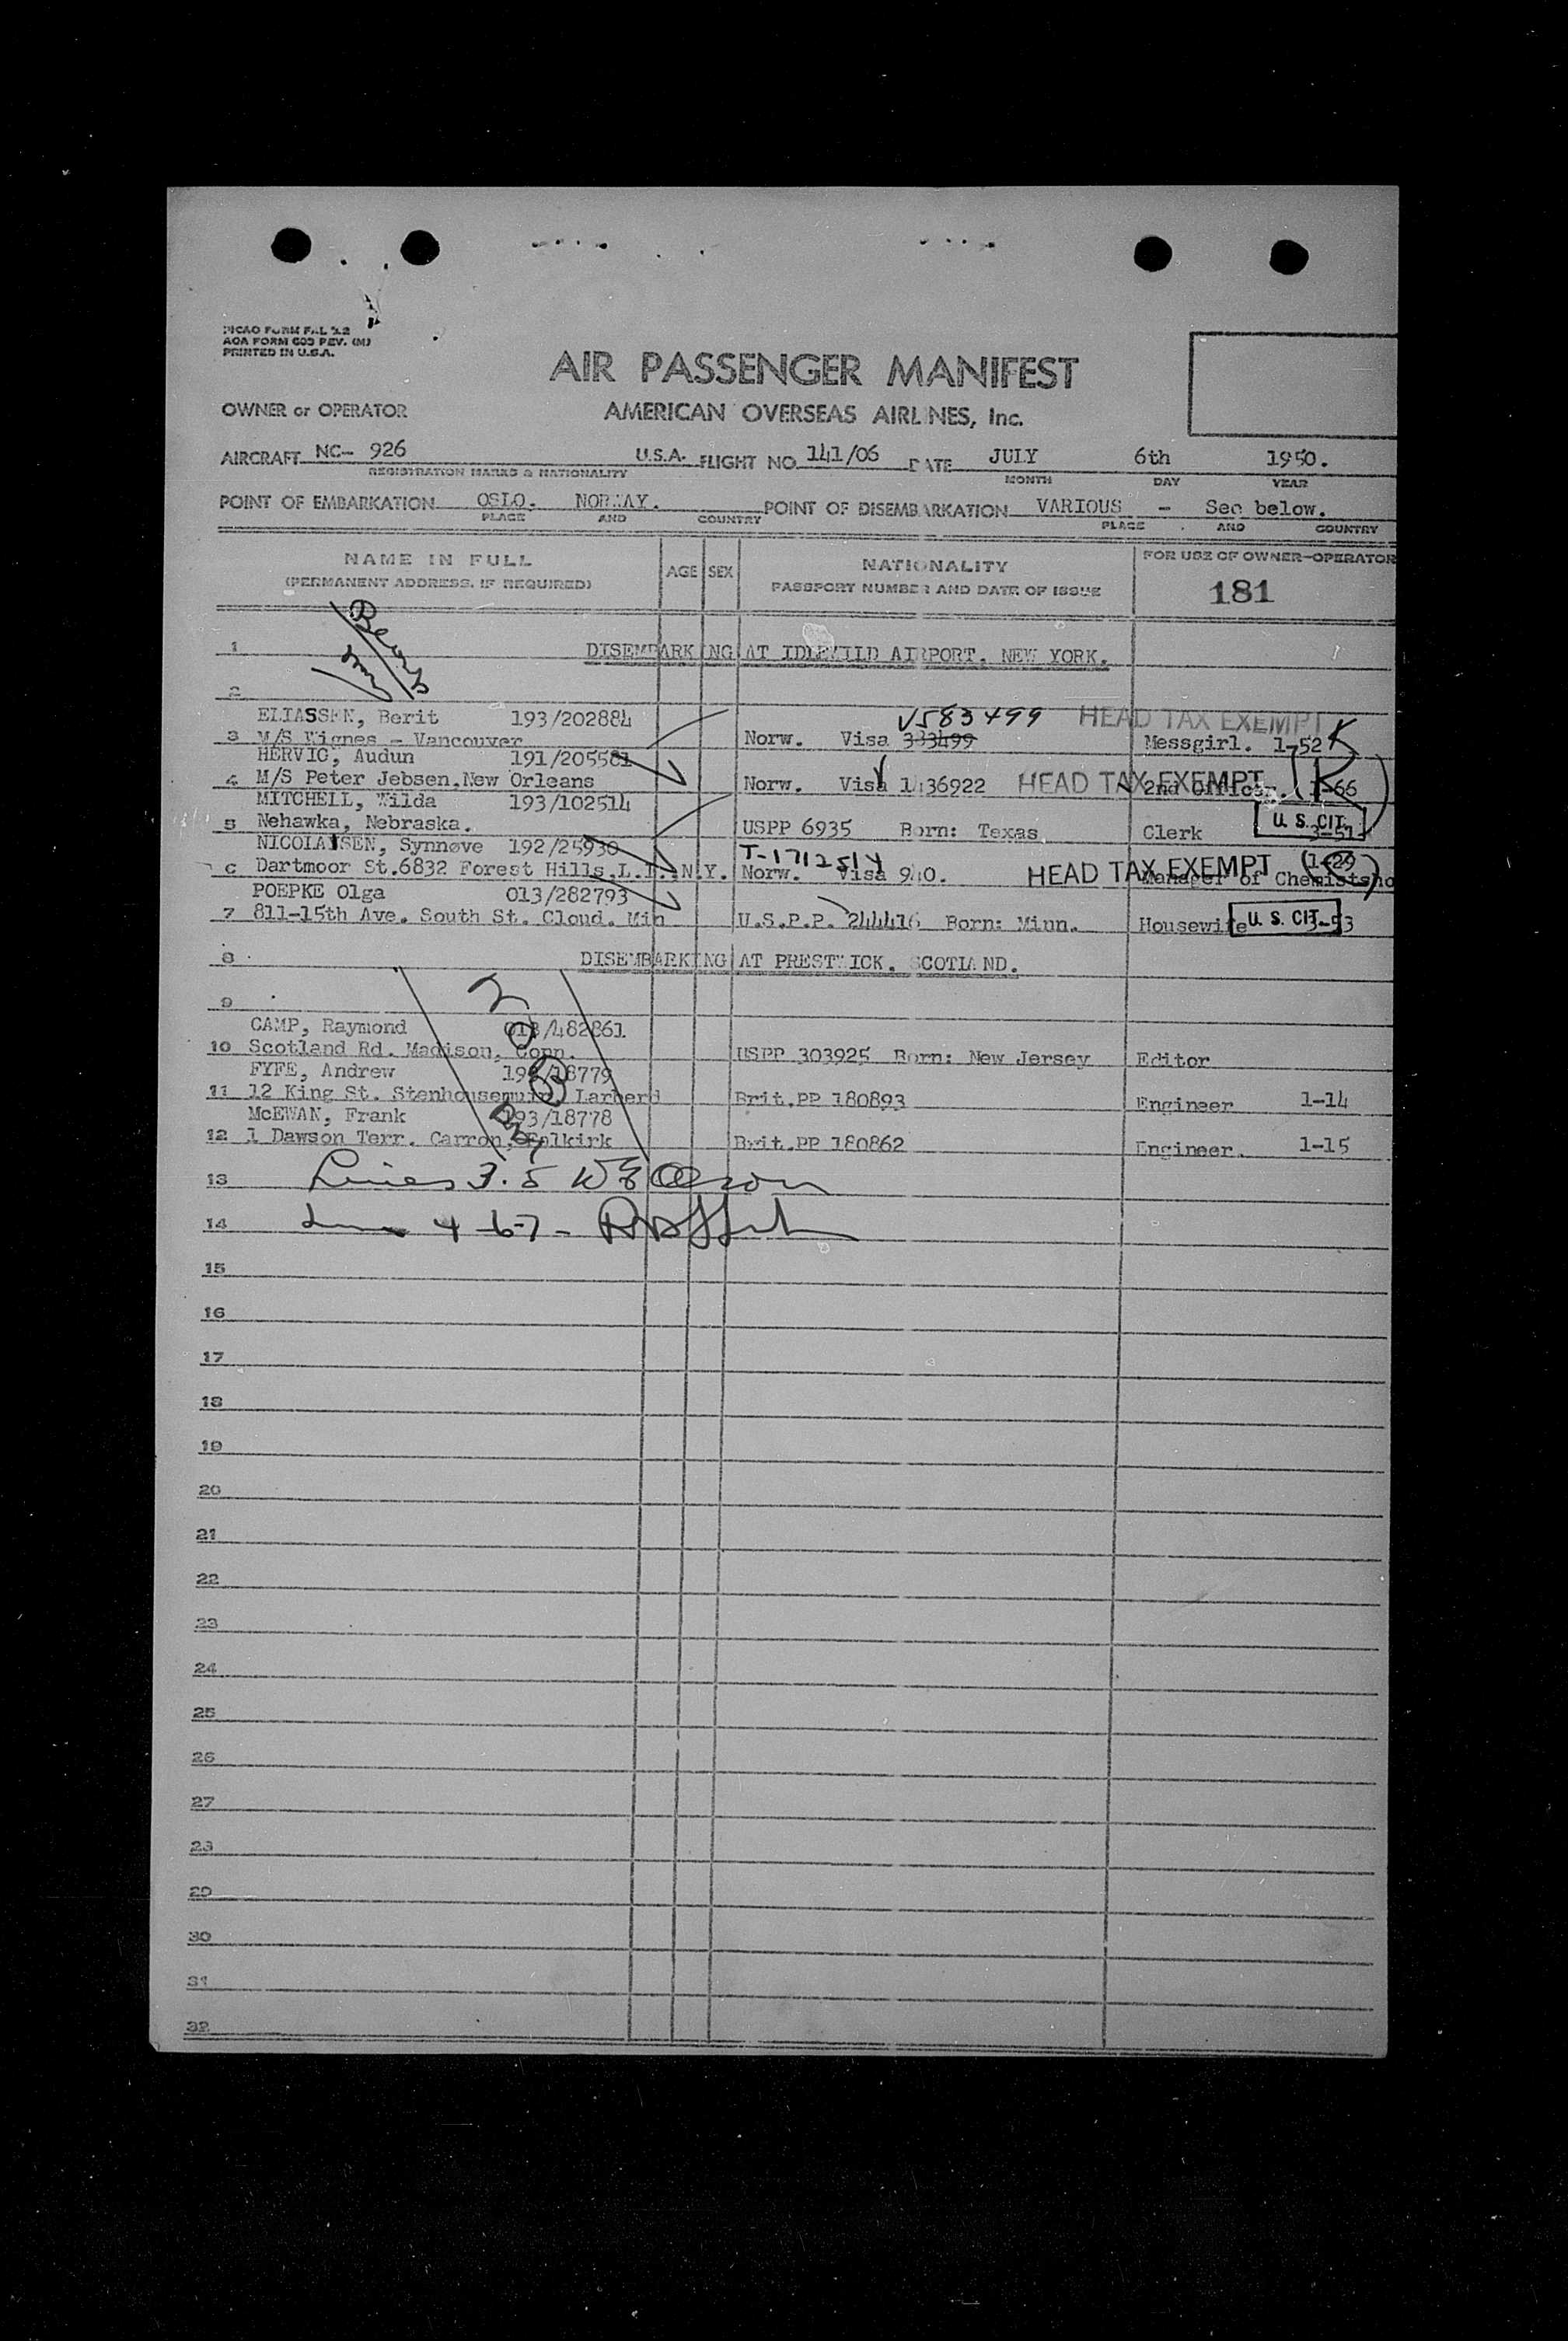 PICAO FORM FAL 2.2
AOA FORM 603 REV. (M)
PRINTED IN U.S.A.
AIR PASSENGER MANIFEST
OWNER or OPERATOR AMERICAN OVERSEAS AIRLINES, Inc.
AIRCRAFT NC- 926 U.S.A. FLIGHT NO. 141/06 DATE JULY 6th 1950.
REGISTRATION MARKS & NATIONALITY MONTH DAY YEAR
POINT OF EMBARKATION OSLO. NORWAY. POINT OF DISEMBARKATION VARIOUS - See below.
PLACE AND COUNTRY PLACE AND COUNTRY
NAME IN FULL AGE SEX NATIONALITY FOR USE OF OWNER-OPERATOR
(PERMANENT ADDRESS, IF REQUIRED) PASSPORT NUMBER AND DATE OF ISSUE 181
1 DISEMBARKING AT IDLEWILD AIRPORT. NEW YORK.
2
ELIASSEN, Berit 193/202884 V583499 HEAD TAX EXEMPT K
3 M/S Vignes - Vancouver Norw. Visa 383499 Messgirl. 1-52
HERVIG, Audun 191/205581
4 M/S Peter Jebsen.New Orleans Norw. Visa 1436922 HEAD TAX EXEMPT 2nd Officer. 1-66 (K)
MITCHELL, Wilda 193/102514
5 Nehawka, Nebraska. USPP 6935 Born: Texas Clerk U. S. CIT. 3-51
NICOLAISEN, Synnøve 192/25930 T-1712514
6 Dartmoor St.6832 Forest Hills.L.I. N.Y. Norw. Visa 940. HEAD TAX EXEMPT Manager of Chemistsho 1-29
POEPKE Olga 013/282793
7 811-15th Ave. South St. Cloud. Min U.S.P.P. 244416 Born: Minn. Housewife U. S. CIT. 3-53
8 DISEMBARKING AT PRESTWICK. SCOTLAND.
9
CAMP, Raymond 013/482861
10 Scotland Rd. Madison, Conn. USPP 303925 Born: New Jersey Editor
FYFE, Andrew 193/18779
11 12 King St. Stenhousemuir. Larberd Brit.PP 180893 Engineer 1-14
McEWAN, Frank 193/18778
12 1 Dawson Terr. Carron, Falkirk Brit.PP 180862 Engineer. 1-15
13 Lines 3. 5
14 4-6-7-
15
16
17
18
19
20
21
22
23
24
25
26
27
28
29
30
31
32